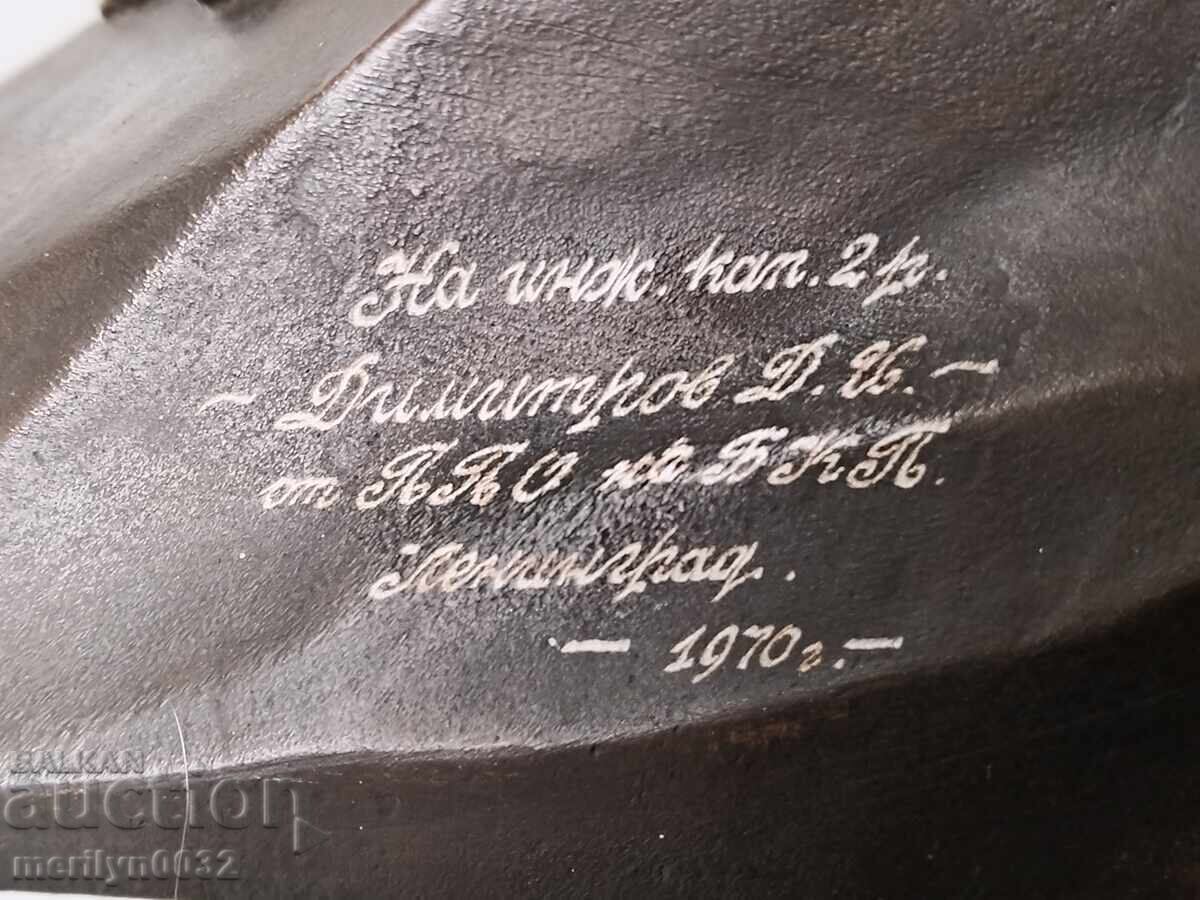 На инж. кап. 2 р.
~ Димитров Д. И. ~
от ППО на БКП.
Ленинград.
— 1970 г. —
BALKAN
auction
merilyn0032